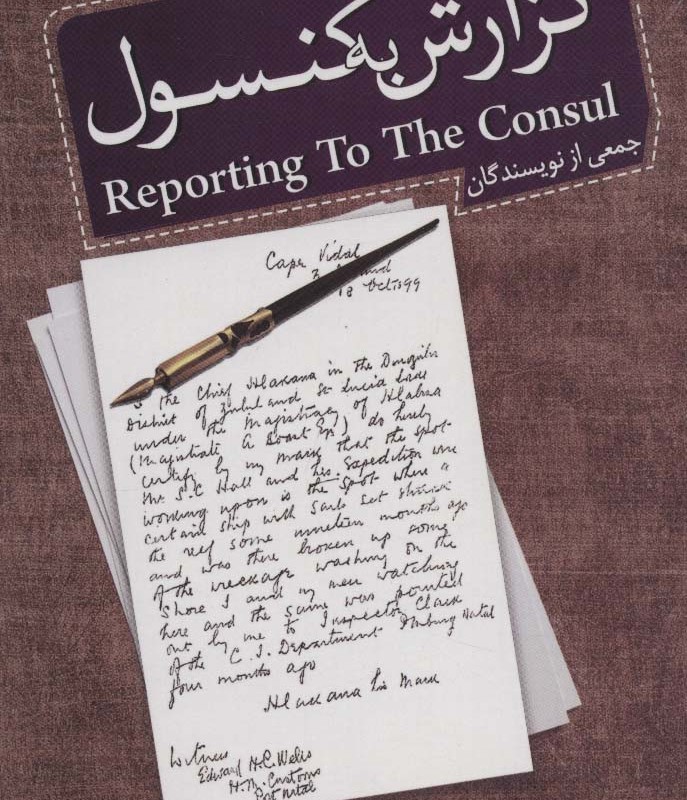 گزارش به کنسول
Reporting To The Consul
جمعی از نویسندگان
Cape Vidal
18 Oct 1899
the Chief Hlakana in the
District of Zululand and St Lucia Lake
under the Magistracy of Hlabisa
(Magistrate A Boast Esq) do hereby
certify by my mark that the spot
Mr. S.C Hall and his Expedition are
working upon is the spot where a
certain ship with sails set struck
the reef some nineteen months ago
and was there broken up some
of the wreckage washing on the
shore I and my men watching
here and the same was pointed
out by me to Inspector Clark
of the C. I. Department Pmburg Natal
four months ago
Hlakana his Mark
Witness
Edward H.C. Welis
H.M. Customs
Port Natal